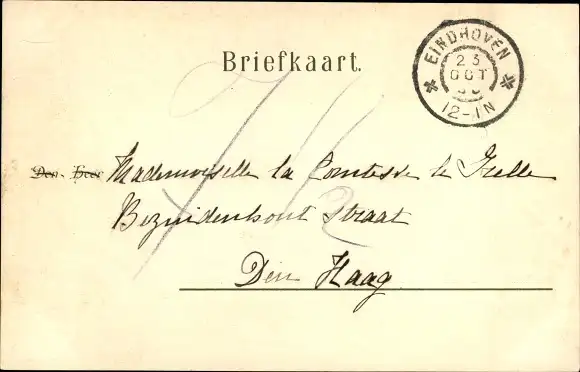 Briefkaart.
EINDHOVEN
23
OCT
12-1N
Den Heer Mademoiselle la Comtesse de
Bezuidenhout Straat
Den Haag